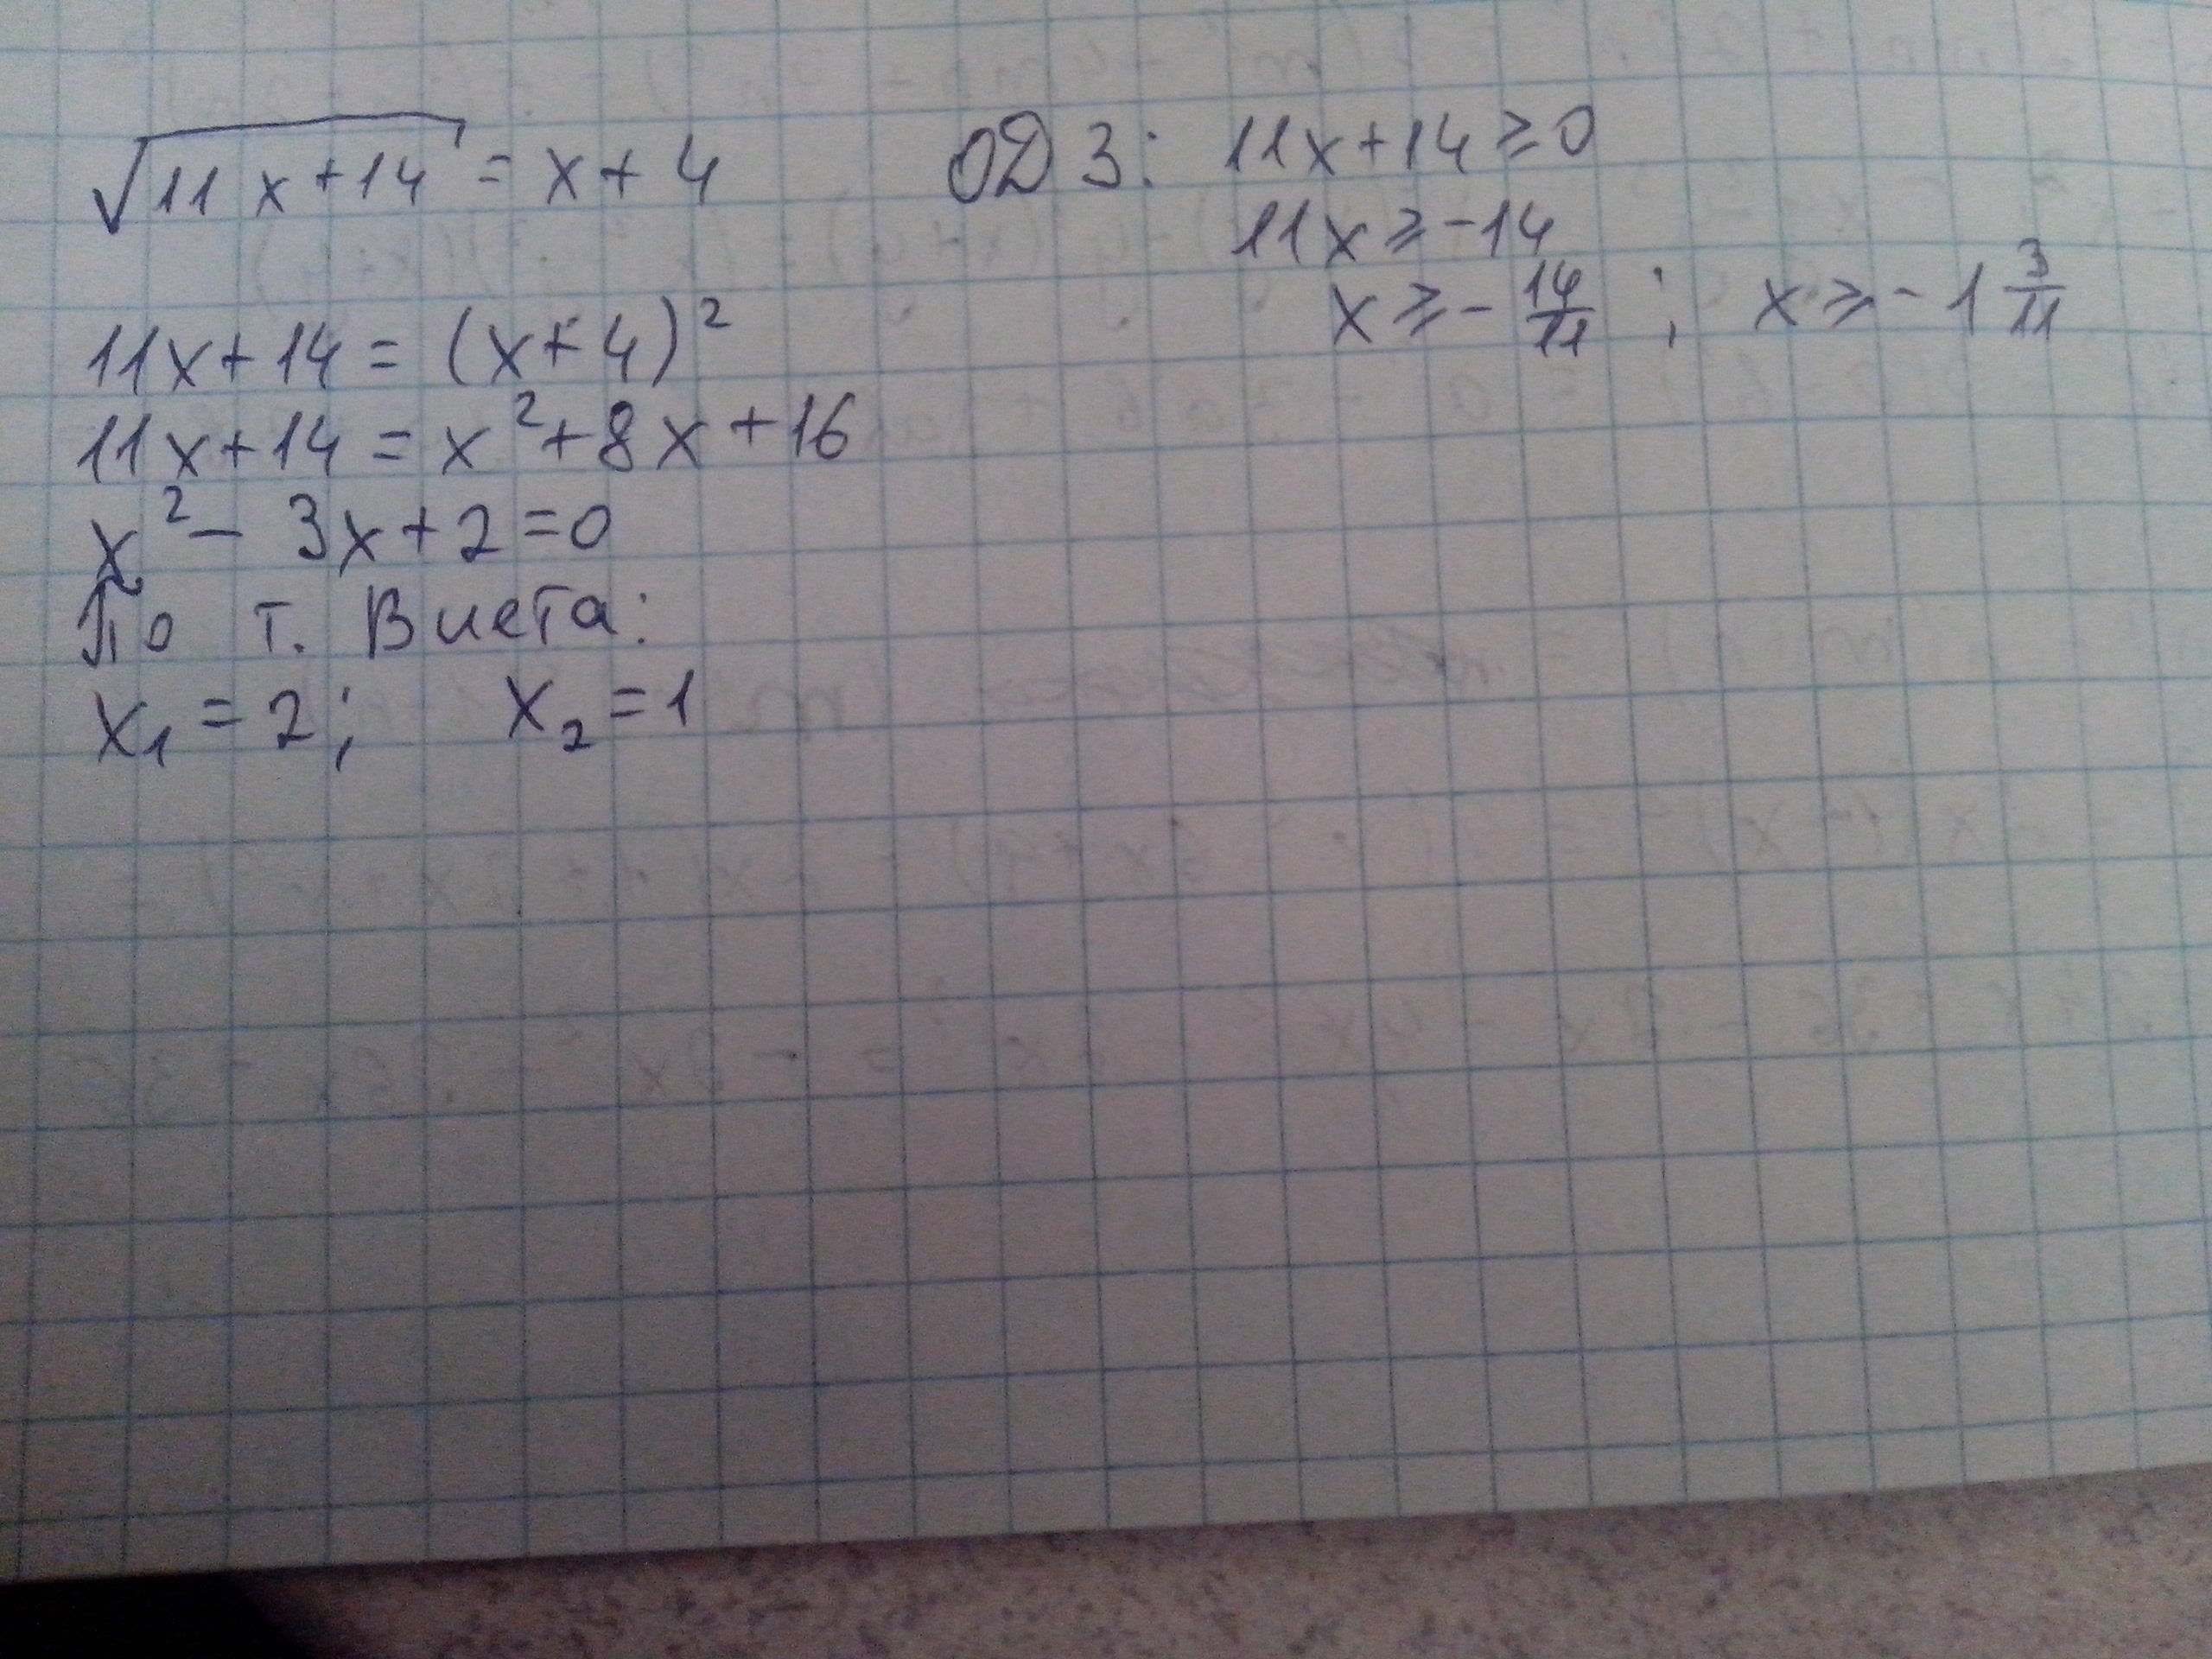 √11x+14 = x+4
ОДЗ: 11x+14 ≥ 0
11x ≥ -14
x ≥ - 14/11 ; x ≥ - 1 3/11
11x+14 = (x+4)²
11x+14 = x²+8x+16
x² - 3x+2=0
По т. Виета:
x₁ = 2; x₂ = 1